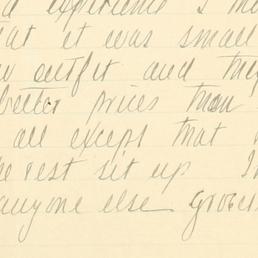 experience
that it was small
outfit and they
better prices than
all except that
the rest sit up
anyone else